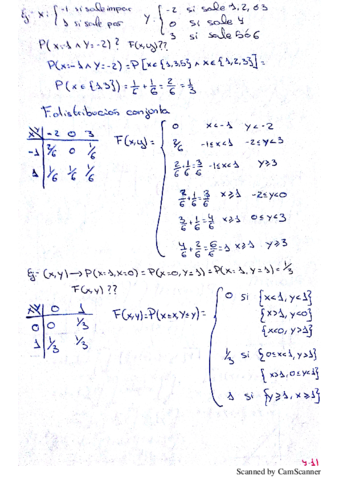 Ej- X: { -1 si sale impar Y: { -2 si sale 1, 2, ó 3
1 si sale par 0 si sale 4
3 si sale 5 ó 6
P(X=-1 ∧ Y=-2)? F(x,y)??
P(X=-1 ∧ Y=-2) = P[X∈{1,3,5} ∧ X∈{1,2,3}] =
P(X∈{1,3}) = 1/6 + 1/6 = 2/6 = 1/3
F. distribución conjunta
X\Y -2 0 3
-1 2/6 0 1/6
1 1/6 1/6 1/6
F(x,y) = { 0 x<-1 y<-2
2/6 -1≤x<1 -2≤y<3
2/6+1/6=3/6 -1≤x<1 y≥3
2/6+1/6=3/6 x≥1 -2≤y<0
3/6+1/6=4/6 x≥1 0≤y<3
4/6+2/6=6/6=1 x≥1 y≥3
Ej- (x,y) → P(X=1, X=0) = P(X=0, Y=1) = P(X=1, Y=1) = 1/3
F(x,y)??
X\Y 0 1
0 0 1/3
1 1/3 1/3
F(x,y) = P(X≤x, Y≤y) = { 0 si {x<1, y<1}
{x>1, y<0}
{x<0, y>1}
1/3 si {0≤x<1, y>1}
{x>1, 0≤y<1}
1 si {y≥1, x≥1}
Scanned by CamScanner